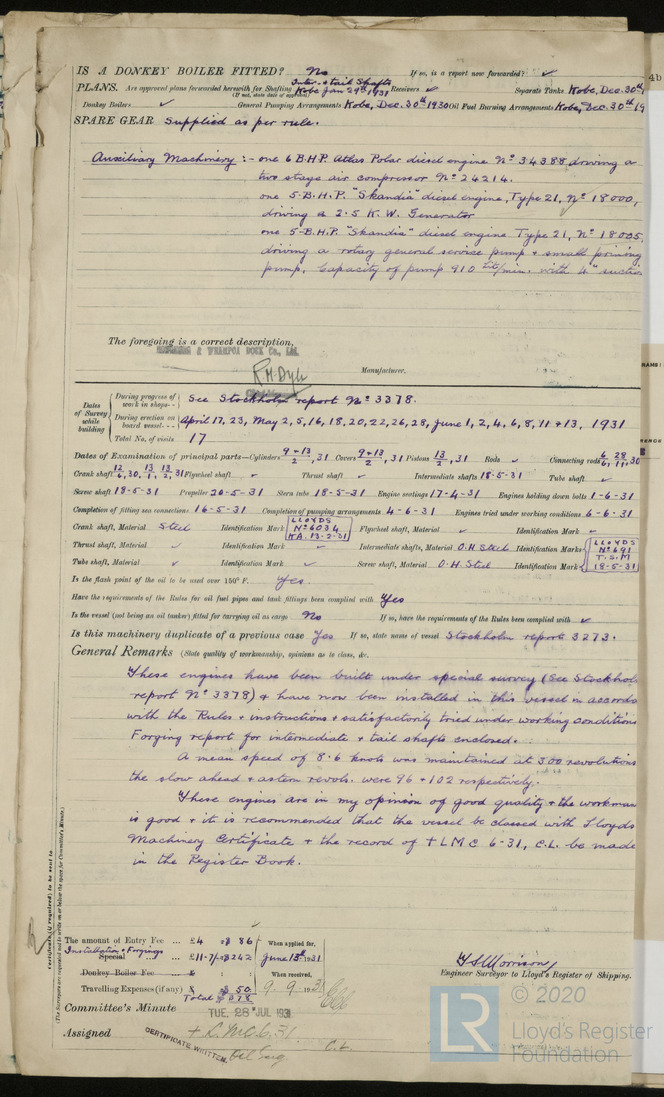 IS A DONKEY BOILER FITTED? No If so, is a report now forwarded? ✓
Inter. & tail Shafts
PLANS. Are approved plans forwarded herewith for Shafting Kobe Jan 29th 1931 Receivers ✓ Separate Tanks Kobe, Dec. 30th
(If not, state date of approval)
Donkey Boilers ✓ General Pumping Arrangements Kobe, Dec. 30th 1930 Oil Fuel Burning Arrangements Kobe, Dec. 30th 19
SPARE GEAR Supplied as per rule.
Auxiliary Machinery :- one 6 B.H.P. Atlas Polar diesel engine No 34388 driving a
two stage air compressor No 24214.
one 5-B.H.P. "Skandia" diesel engine, Type 21, No 18000,
driving a 2.5 K.W. Generator
one 5-B.H.P. "Skandia" diesel engine Type 21, No 18005
driving a rotary general service pump & small priming
pump. Capacity of pump 910 lit/min. with 4" suction
The foregoing is a correct description,
& WHAMPOA DOCK Co., Ld.
R.M. Dyer
Manufacturer.
Dates of Survey while building
During progress of work in shops - - See Stockholm report No 3378.
During erection on board vessel - - - April 17, 23, May 2, 5, 16, 18, 20, 22, 26, 28, June 1, 2, 4, 6, 8, 11 & 13, 1931
Total No. of visits 17
Dates of Examination of principal parts—Cylinders 9 & 13/2, 31 Covers 9 & 13/2, 31 Pistons 13/2, 31 Rods ✓ Connecting rods 6/6, 28/11, 30
Crank shaft 12/6, 30, 13/1, 13/2, 31 Flywheel shaft ✓ Thrust shaft ✓ Intermediate shafts 18-5-31 Tube shaft ✓
Screw shaft 18-5-31 Propeller 20-5-31 Stern tube 18-5-31 Engine seatings 17-4-31 Engines holding down bolts 1-6-31
Completion of fitting sea connections 16-5-31 Completion of pumping arrangements 4-6-31 Engines tried under working conditions 6-6-31
Crank shaft, Material Steel Identification Mark LLOYDS No 6034 KA. 13-2-31 Flywheel shaft, Material ✓ Identification Mark ✓
Thrust shaft, Material ✓ Identification Mark ✓ Intermediate shafts, Material O.H Steel Identification Marks LLOYDS No 691 T.S.M 18-5-31
Tube shaft, Material ✓ Identification Mark ✓ Screw shaft, Material O.H. Steel Identification Mark
Is the flash point of the oil to be used over 150° F. Yes.
Have the requirements of the Rules for oil fuel pipes and tank fittings been complied with Yes
Is the vessel (not being an oil tanker) fitted for carrying oil as cargo No If so, have the requirements of the Rules been complied with ✓
Is this machinery duplicate of a previous case Yes If so, state name of vessel Stockholm report 3273.
General Remarks (State quality of workmanship, opinions as to class, &c.
These engines have been built under special survey (See Stockhol
report No 3378) & have now been installed in this vessel in accords
with the Rules & instructions & satisfactorily tried under working conditions
Forging report for intermediate & tail shafts enclosed.
A mean speed of 8.6 knots was maintained at 300 revolutions
the slow ahead & astern revols. were 96 & 102 respectively.
These engines are in my opinion of good quality & the workman
is good & it is recommended that the vessel be classed with Lloyds
Machinery Certificate & the record of + LMC 6-31, C.L. be made
in the Register Book.
Certificate (if required) to be sent to
(The Surveyors are requested not to write on or below the space for Committee's Minute.)
The amount of Entry Fee ... £4 $ 86 When applied for,
Installation & Forgings
Special ... £11-7/- $242 June 13th 1931
Donkey Boiler Fee ... £ When received,
Travelling Expenses (if any) £ $ 50 9. 9. 1931
Total $ 378
H.S. Morrison,
Engineer Surveyor to Lloyd's Register of Shipping.
Committee's Minute TUE. 28 JUL 1931
Assigned + L.M.C. 6.31
CERTIFICATE WRITTEN. Oil Eng C.L.
4b
LR © 2020
Lloyd's Register
Foundation